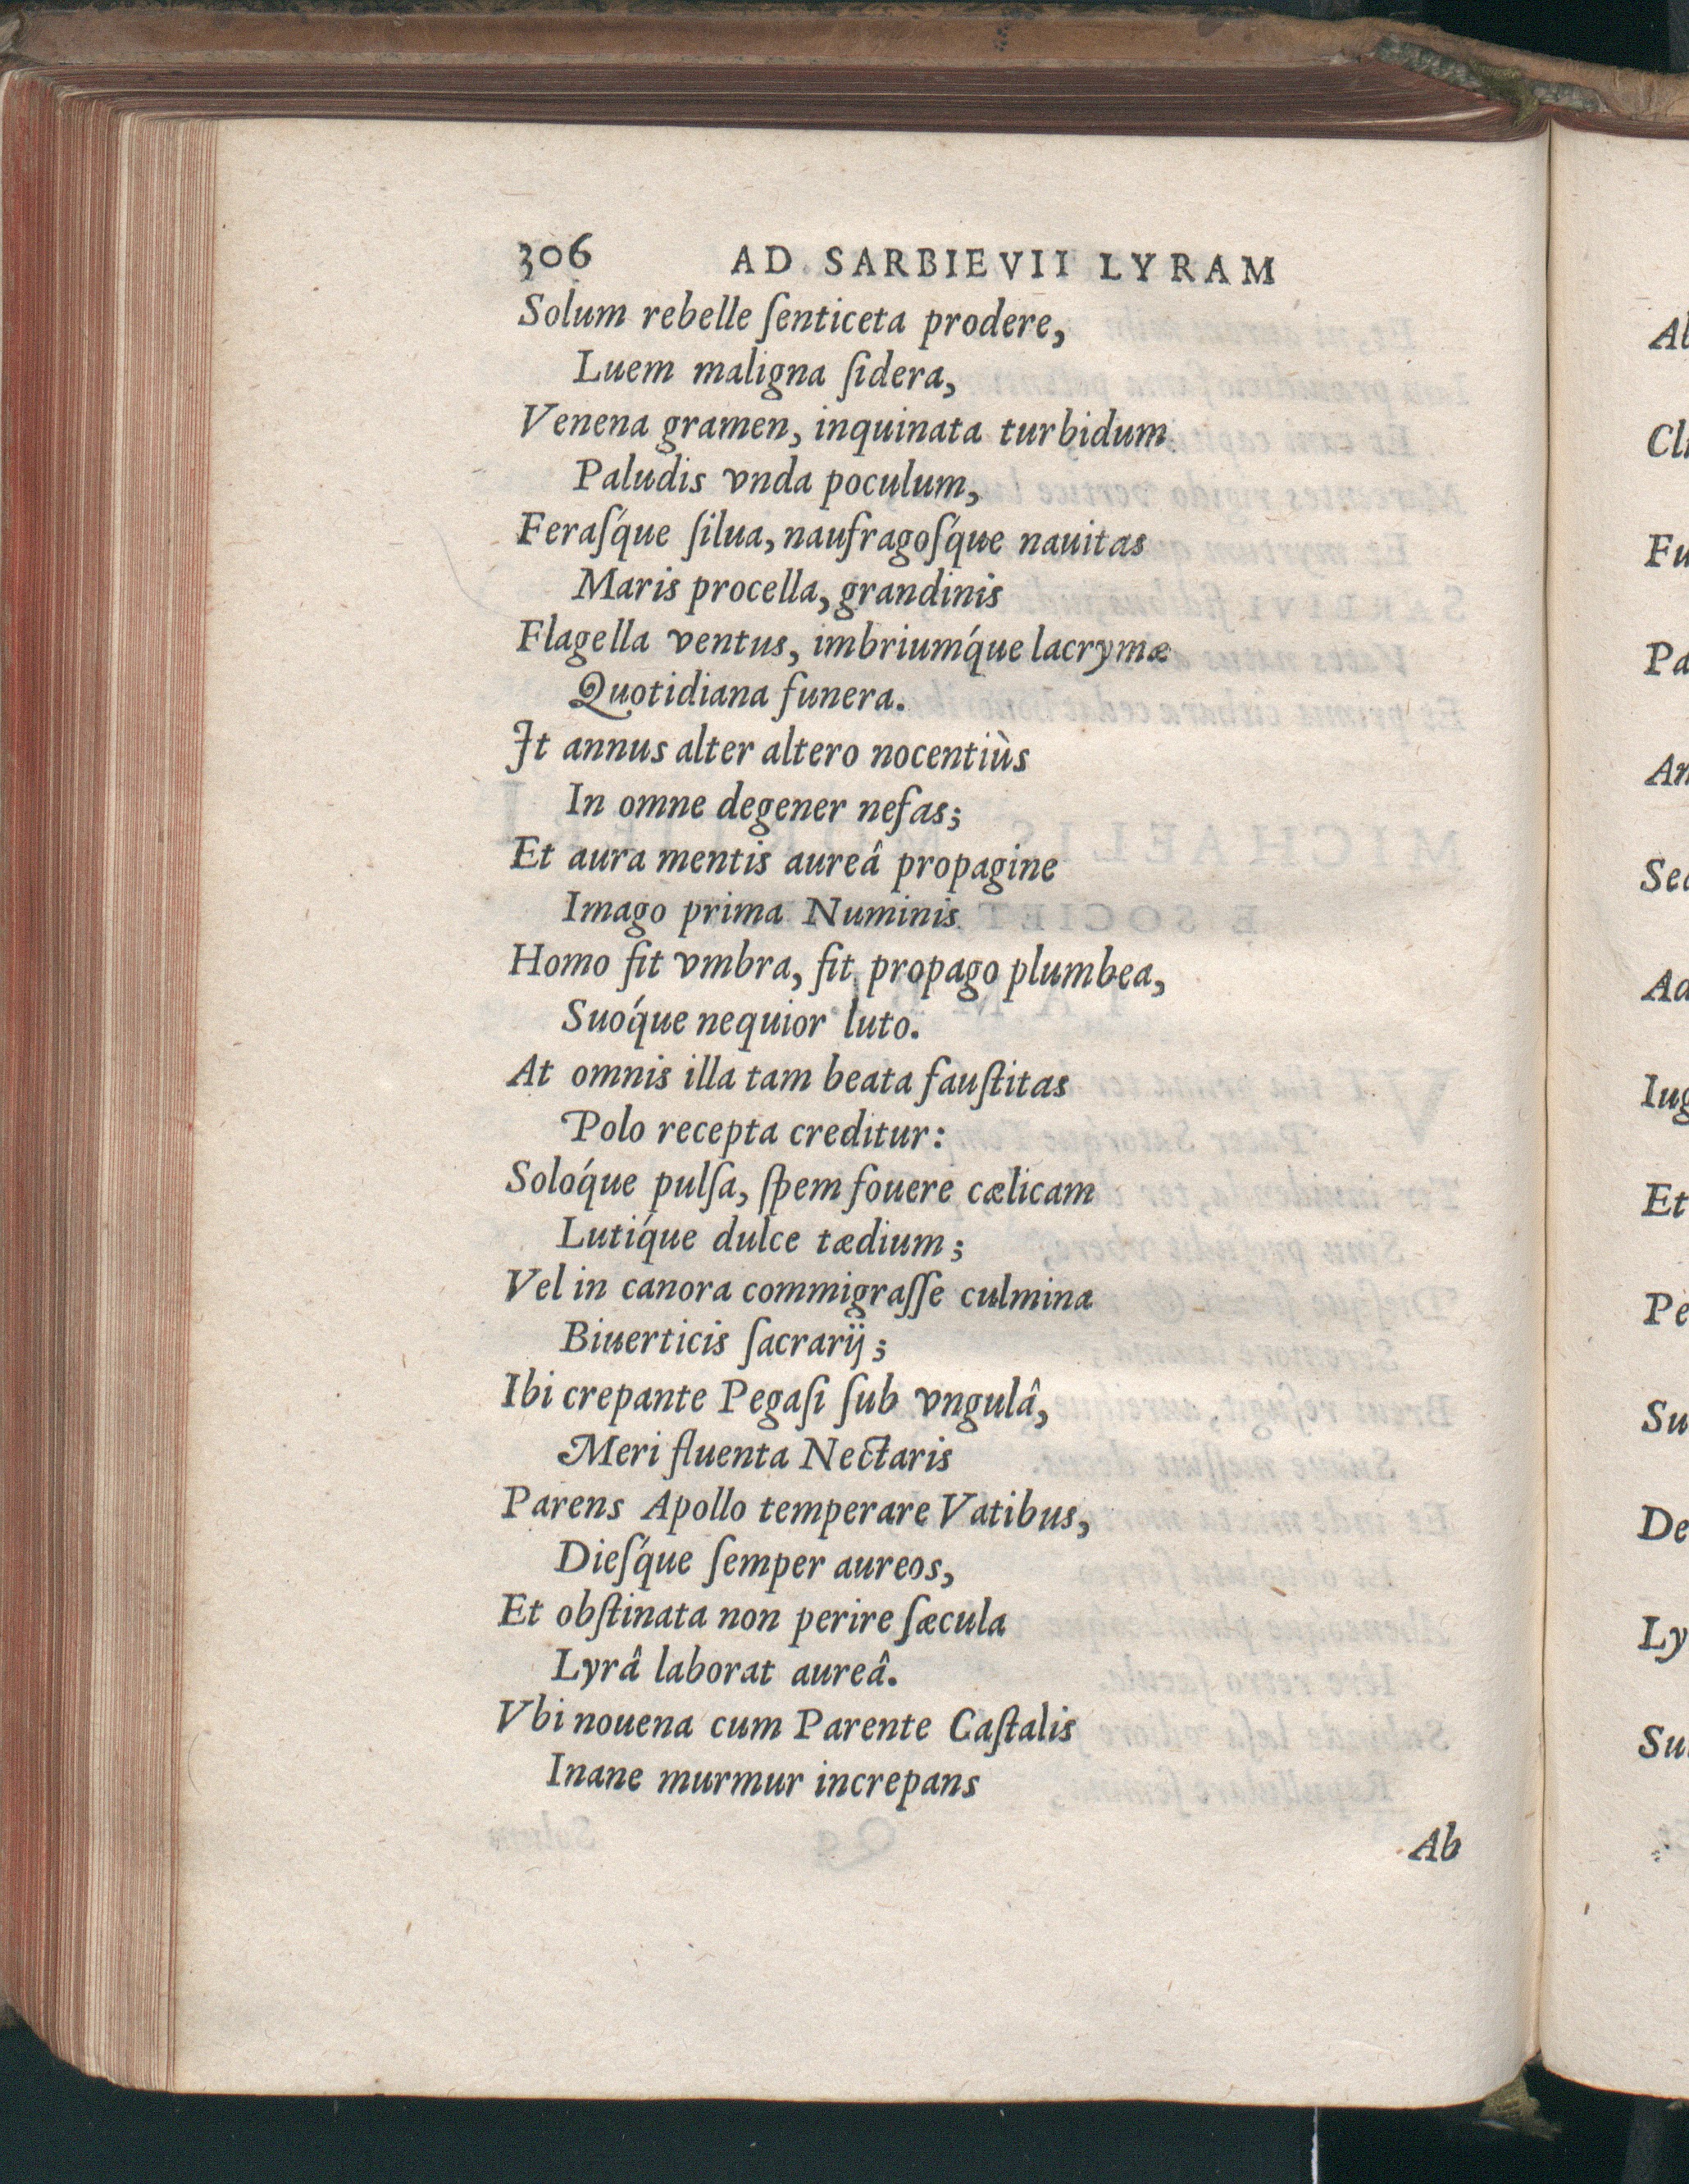 306 AD SARBIEVII LYRAM
Solum rebelle ſenticeta prodere,
Luem maligna ſidera,
Venena gramen, inquinata turbidum
Paludis vnda poculum,
Feraſq́ue ſilua, naufragoſq́ue nauitas
Maris procella, grandinis
Flagella ventus, imbriumq́ue lacrymæ
Quotidiana funera.
It annus alter altero nocentiùs
In omne degener nefas;
Et aura mentis aureâ propagine
Imago prima Numinis
Homo fit vmbra, fit propago plumbea,
Suoq́ue nequior luto.
At omnis illa tam beata fauſtitas
Polo recepta creditur:
Soloq́ue pulſa, ſpem fouere cælicam
Lutiq́ue dulce tædium;
Vel in canora commigraſſe culmina
Biuerticis ſacrarij;
Ibi crepante Pegaſi ſub vngulâ,
Meri fluenta Nectaris
Parens Apollo temperare Vatibus,
Dieſq́ue ſemper aureos,
Et obſtinata non perire ſæcula
Lyrâ laborat aureâ.
Vbi nouena cum Parente Caſtalis
Inane murmur increpans
Ab
Al
Cli
Fu
Pa
An
Sed
Ad
Iug
Et
Pe
Su
De
Ly
Su